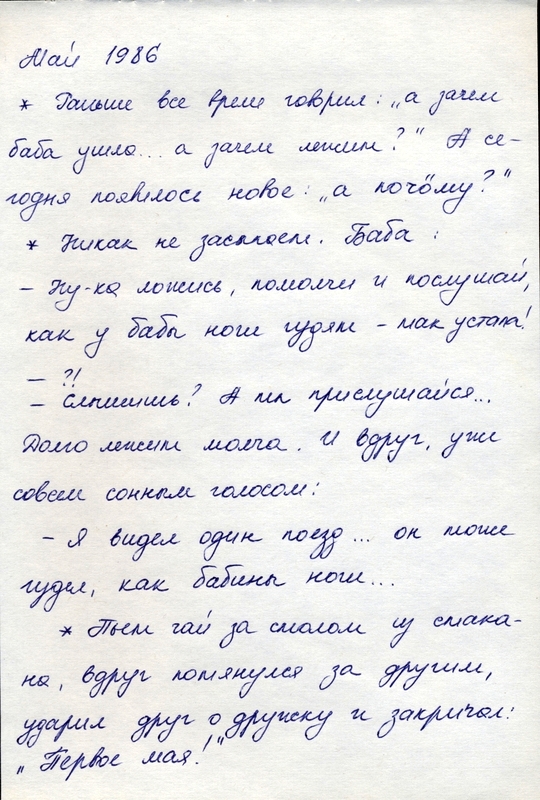 Май 1986
* Раньше все время говорил: „а зачем
баба ушла... а зачем лежит?" А се-
годня появилось новое: „а почёму?"
* Никак не засыпает. Баба :
– Ну-ка ложись, помолчи и послушай,
как у бабы ноги гудят – так устала!
– ?!
– Слышишь? А ты прислушайся...
Долго лежит молча. И вдруг, уже
совсем сонным голосом:
– Я видел один поезд... он тоже
гудел, как бабины ноги...
* Пьет чай за столом из стака-
на, вдруг потянулся за другим,
ударил друг о дружку и закричал:
„Первое мая!"